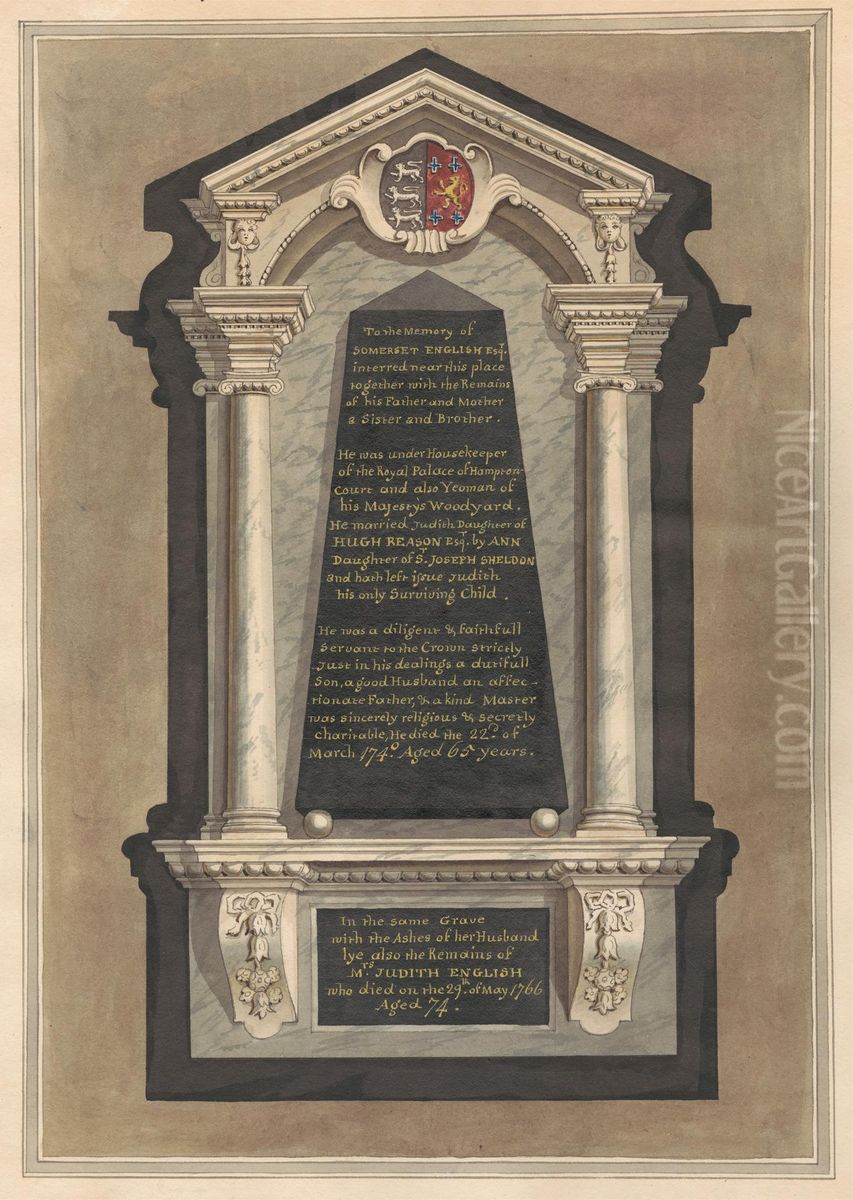 To the Memory of
SOMERSET ENGLISH Esqr.
interred near this place
together with the Remains
of his Father and Mother
a Sister and Brother.
He was under Housekeeper
of the Royal Palace of Hampton-
Court and also Yeoman of
his Majesty's Woodyard.
He married Judith Daughter of
HUGH REASON Esqr. by ANN
Daughter of Sr. JOSEPH SHELDON
and hath left issue Judith
his only Surviving Child.
He was a diligent & faithfull
Servant to the Crown strictly
Just in his dealings a dutifull
Son, a good Husband an affec-
tionate Father, & a kind Master
was sincerely religious & secretly
charitable, He died the 22d. of
March 174 Aged 65 years.
In the same Grave
with the Ashes of her Husband
lye also the Remains of
Mrs. JUDITH ENGLISH
who died on the 29th. of May 1766
Aged 74.
NiceArtGallery.com